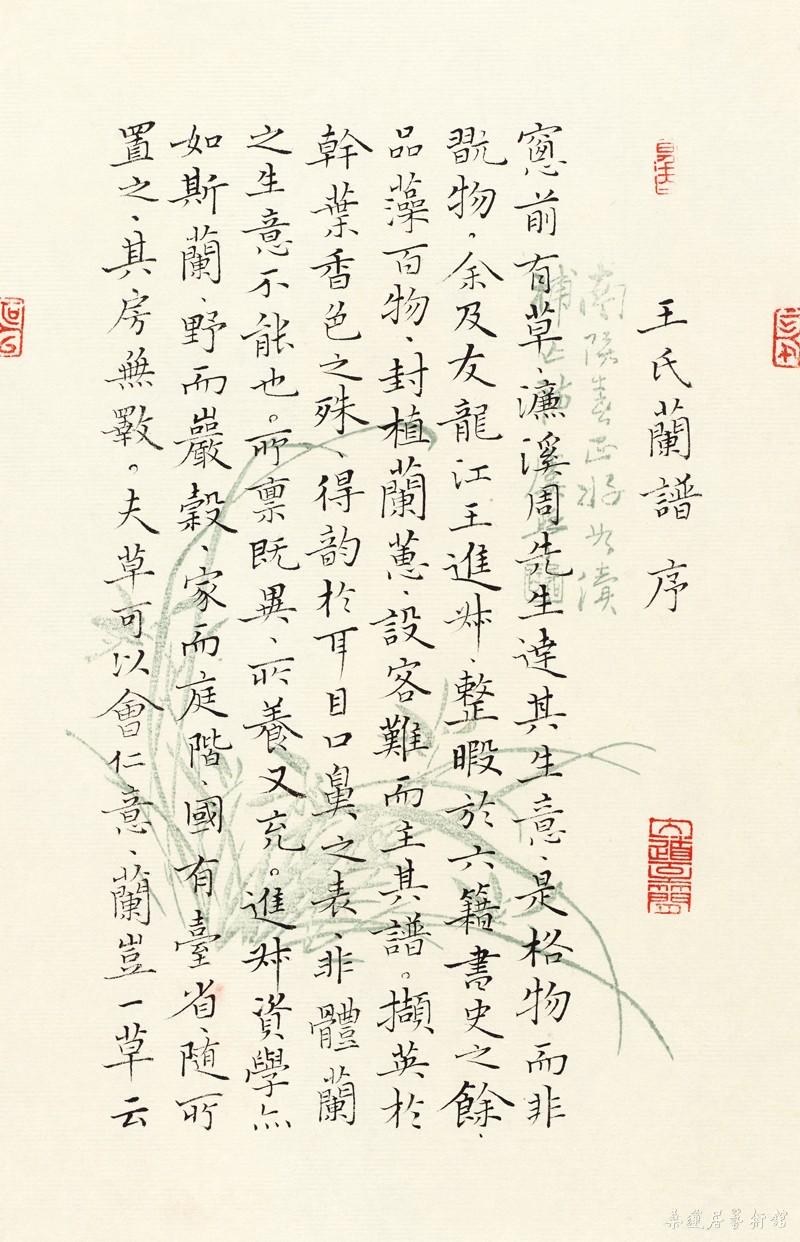 王氏蘭譜 序
窻前有草、濂溪周先生達其生意、是格物而非
翫物。余及友龍江王進叔、整暇於六籍書史之餘、
品藻百物、封植蘭蕙、設客難而主其譜。擷英於
幹葉香色之殊、得韵於耳目口鼻之表、非體蘭
之生意不能也。所禀既異、所養又充。進叔資學亦
如斯蘭、野而巖穀、家而庭階、國有臺省、随所
置之、其房無斁。夫草可以會仁意、蘭豈一草云
桑蓮居藝術館